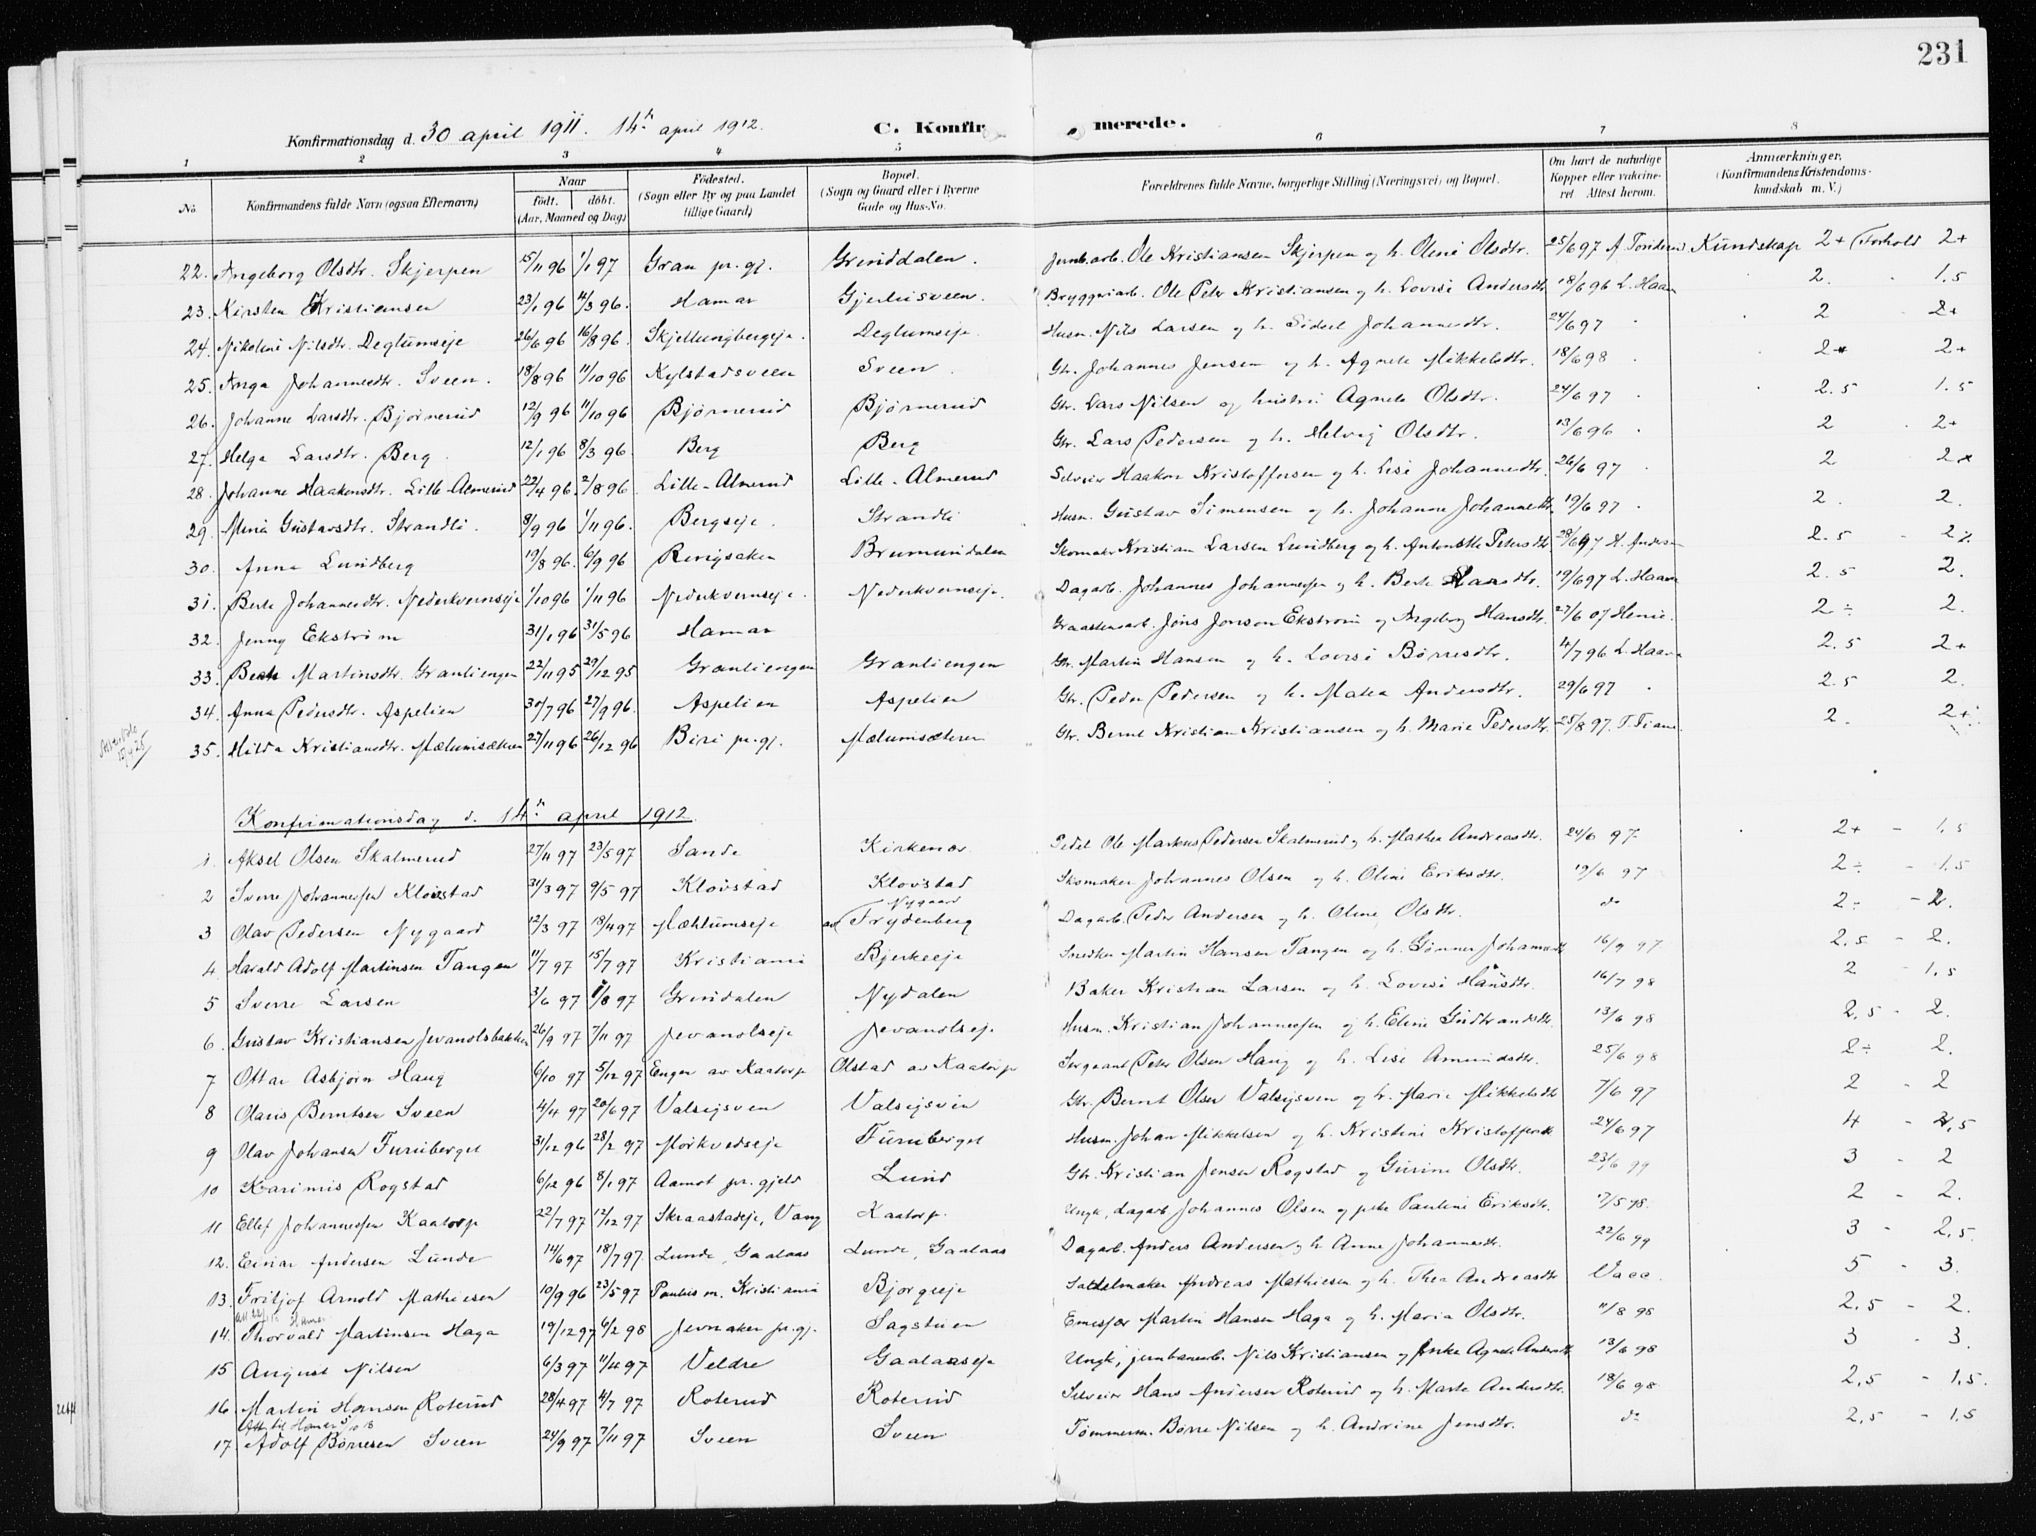 231
Konfirmationsdag d. 30 april 1911. 14de april 1912. C. Konfirmerede.
1 2 3 4 5 6 7 8
No. Konfirmandens fulde Navn (ogsaa Efternavn) Naar født. døbt. (Aar, Maaned og Dag) Fødested. (Sogn eller By og paa Landet tillige Gaard) Bopæl. (Sogn og Gaard eller i Byerne Gade og Hus-No. Forældrenes fulde Navne, borgerlige Stilling (Næringsvei) og Bopæl. Om havt de naturlige Kopper eller vaccineret Attest herom. Anmærkninger. (Konfirmandens Kristendomskundskab m. V.)
22. Angeborg Olsdtr. Skjerpen 15/11 96 1/1 97 Gran pr.gj. Grinddalen. Jernb.arb. Ole Kristiansen Skjerpen og h. Oline Olsdtr. 25/6 97 Kundskap 2+ Forhold 2+
23. Kirsten Kristiansen 23/1 96 4/3 96. Hamar Gjerlusveen. Bryggeriarb. Ole Peter Kristiansen og h. Lovise Andersdtr. 18/6 96 L. Haan 2. 1.5
24. Nikoline Nilsdtr. Deglumseje 26/6 96 16/8 96. Skjellungbergeje. Deglumseje. Husm. Nils Larsen og h. Sidsel Johannesdtr. 24/6 97 2 2+
25. Inga Johannesdtr. Sveen. 18/8 96 11/10 96 Kylstadsveen Sveen. Gbr. Johannes Jensen og h. Agnete Mikkelsdtr. 18/6 98 2+ 2+
26. Johanne Larsdtr. Bjørnerud 12/9 96 11/10 96 Bjørnerud Bjørnerud Gbr. Lars Nilsen og hustru Agnete Olsdtr. 24/6 97 2.5 1.5
27. Helga Larsdtr. Berg 12/1 96 8/3 96. Berg Berg Gbr. Lars Pedersen og h. Helvig Olsdtr. 13/6 96 2 2+
28. Johanne Haakonsdtr. Lille-Almerud 22/4 96. 2/8 96. Lille-Almerud Lille-Almerud Selveier Haakon Kristoffersen og h. Lise Johannesdtr. 26/6 97 2 2+
29. Mina Gustavsdtr. Strandli. 8/9 96 1/11 96. Bergseje. Strandli Husm. Gustav Simensen og h. Johanne Johannesdtr. 19/6 97 2. 2.
30. Anna Lundberg 19/8 96. 6/9 96 Ringsaker Brumundalen Skomaker Kristian Larsen Lundberg og h. Antonette Petersdtr. 28/6 97 2.5 2
31. Berte Johannesdtr. Nederkvernseje 1/10 96 1/11 96 Nederkvernseje. Nederkvernseje. Dagarb. Johannes Johannesen og h. Berte Hansdtr. 19/6 97 L. Haan 2.5 2.
32. Jenny Ekstrøm 31/1 96 31/5 96 Hamar Graastensarb. Jöns Jonson Ekstrøm og Ingeborg Hansdtr. 27/6 07 Henie. 2÷ 2.
33. Berte Martinsdtr. Granliengen 22/11 95 29/12 95 Granliengen Granliengen Gbr. Martin Hansen og h. Lovise Børresdtr. 4/7 96 L. Haan 2.5 2+
34. Anna Pedersdtr. Aspelien 30/7 96 27/9 96. Aspelien Aspelien Gbr. Peder Pedersen og h. Matea Andersdtr. 29/6 97 2.5 2.
35. Hilda Kristiansdtr. Mælumsæteren 27/11 96 26/12 96 Biri pr.gj. Mælumsæteren Gbr. Bernt Kristian Kristiansen og h. Marie Pedersdtr. 25/8 97. 2. 2+
Konfirmationsdag d. 14de april 1912.
1. Aksel Olsen Skalmerud 27/11 97 23/5 97 Sande Kirkenær Pedel Ole Markus Pedersen Skalmerud og h. Mathea Andreasdtr. 24/6 97. 2+ - 1.5
2 Sverre Johannesen Klovstad 31/3 97 9/5 97 Klovstad Klovstad Skomaker Johannes Olsen og h. Oline Eriksdtr. 19/6 97 2÷ - 1.5
3 Olav Pedersen Nygaard 12/3 97 18/4 97 Mæhlumseje Nygaard av Frydenberg Dagarb. Peder Andersen og h. Oline Olsdtr. do 2÷ - 2.
4 Harald Adolf Martinsen Tangen 11/7 97 15/7 97 Kristiania Bjerkeeje Snedker Martin Hansen Tangen og h. Gunner Johannesdtr. 16/9 97 2.5 - 2.
5 Sverre Larsen 3/6 97 1/8 97 Grindalen Nydalen Baker Kristian Larsen og h. Lovise Hansdtr. 16/7 98 2 - 1,5
6. Gustav Kristiansen Jevanolsbakken 26/9 97 7/11 97 Jevanolseje Jevanolseje Husm. Kristian Johannesen og h. Eline Gudbrandsdtr. 13/6 98 2,5 - 2.
7 Ottar Asbjørn Haug 6/10 97 5/12 97 Enger av Kaatorp Olstad av Kaatorp Sergeant Peter Olsen Haug og h. Lise Amundsdtr. 25/6 98 2÷ 2.
8 Olaus Berntsen Sveen 4/4 97 20/6 97 Valsejsven Valsejsvin Gbr. Bernt Olsen Valsejsven og h. Marie Mikkelsdtr 7/6 97 2 - 2
9 Olav Johansen Furuberget 31/12 96 28/2 97 Mørkvedseje Furuberget Husm. Johan Mikkelsen og h. Kristine Kristoffersdtr. 24/6 97 4 - 2,5
10 Karinius Rogstad 6/12 96 8/1 97 Aamot pr. gjeld Lund Gbr. Kristian Jensen Rogstad og Gurine Olsdtr. 23/6 99 3 - 2
11 Ellef Johannesen Kaatorp 22/7 97 12/12 97 Skraastadeje, Vang Kaatorp. Ungk. dagarb Johannes Olsen og pike Pauline Eriksdtr. 17/5 98. 2 - 2.
12. Einar Andersen Lunde 14/6 97 18/7 97 Lunde, Gaalaas Lunde, Gaalaas Dagarb. Anders Andersen og h. Anne Johannesdtr. 22/6 99 3 - 2,5
13. Fritjof Arnold Mathiesen 10/9 96 23/5 97 Paulus m. Kristiania Bjørgeeje Saddelmaker Andreas Mathiesen og h. Thea Andreasdtr Vacc. 5 - 3.
14. Thorvald Martinsen Haga 19/12 97 6/2 98 Jevnaker pr.gj. Sagstuen Martin Hansen Haga og h. Maria Olsdtr. 11/8 98 2,5 - 2.
15 August Nilsen 6/3 97 11/4 97 Veldre Gaalaaseje Ungk, jernbanearb. Nils Kristiansen og Pike Agnete Andersdtr 13/6 98 3 - 3.
16. Martin Hansen Roterud 28/4 97 4/7 97 Roterud Roterud Selveier Hans Andersen Roterud og h. Marte Andersdtr. 18/6 98 2,5 - 1,5.
17. Adolf Børresen Sveen 24/9 97 7/11 97 Sveen Sveen Tømmerm. Børre Nilsen og h. Andrine Jensdtr. do 2,5 - 1,5